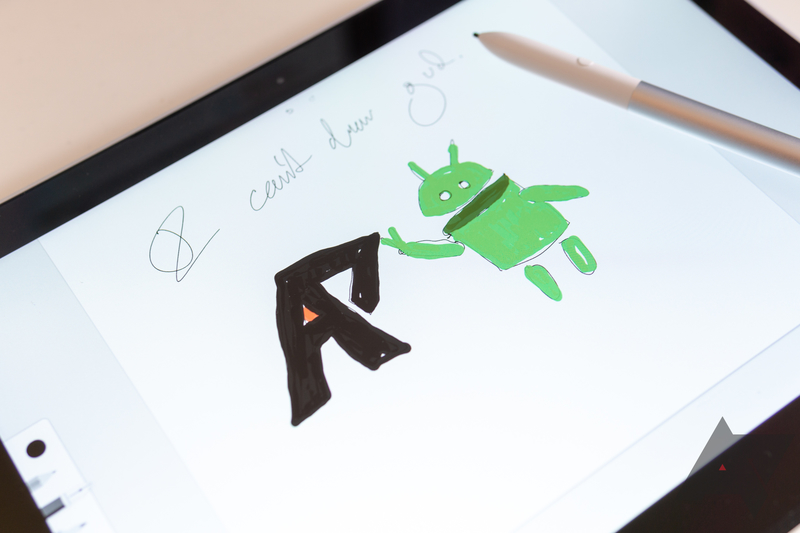 I can't draw gud.